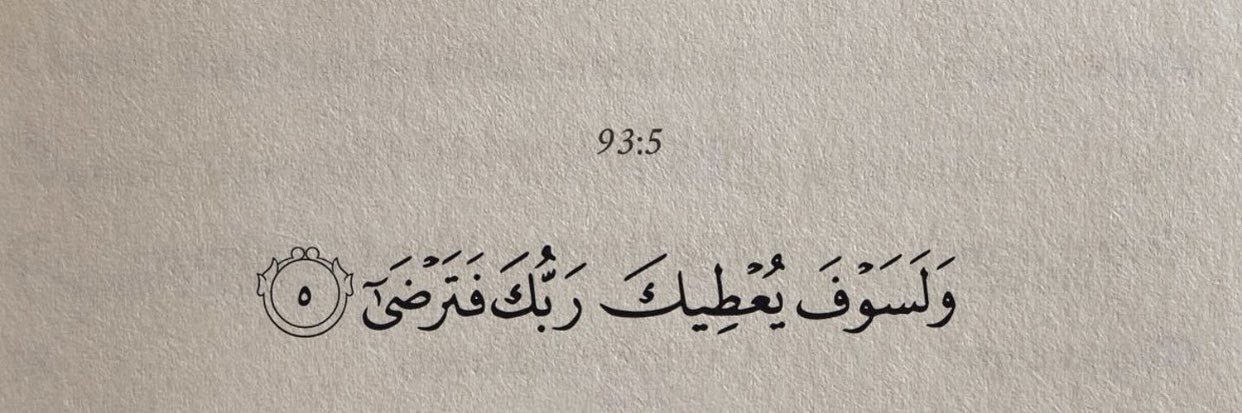 93:5
وَلَسَوۡفَ يُعۡطِيكَ رَبُّكَ فَتَرۡضَىٰٓ ٥